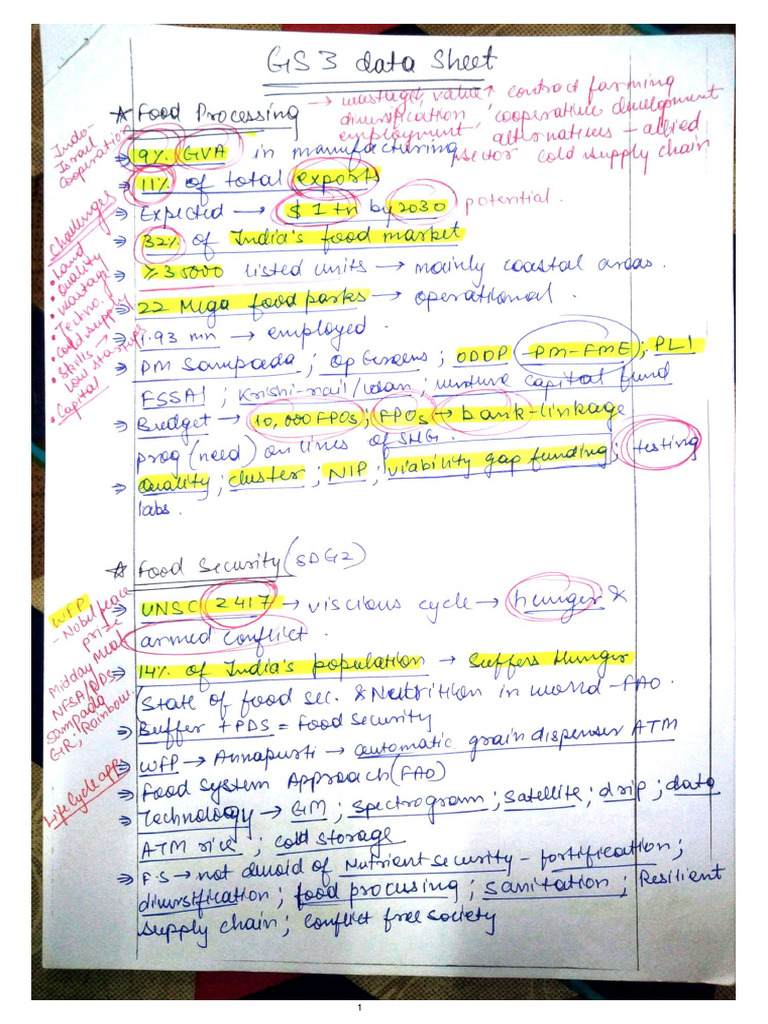 GS 3 data Sheet
★ Food Processing → wastage↓, value↑ contract farming
diversification, cooperative development
employment alternatives - allied
sector cold supply chain
Indo-
Israel
Cooperation
⇒ 9% GVA in manufacturing
⇒ 11% of total exports
⇒ Expected → $ 1 tn by 2030 potential.
⇒ 32% of India's food market
⇒ ≥35000 listed units → mainly coastal areas.
⇒ 22 Mega food parks → operational.
⇒ 1.93 mn → employed.
⇒ PM Sampada; Op Greens; ODOP - PM-FME; PLI
FSSAI; Krishi-rail/udan; venture capital fund
⇒ Budget → 10,000 FPOs; FPOs → bank-linkage
prog (need) on lines of SHG.
⇒ Quality; cluster; NIP; viability gap funding; testing
labs.
Challenges
• Land
• Quality
• wastage
• Techno.
• Cold supply
• Skills →
low startups
• Capital
★ Food Security (SDG2)
⇒ UNSC 2417 → viscious cycle → hunger &
armed conflict.
⇒ 14% of India's population → Suffers Hunger
(State of food sec. & Nutrition in world - FAO.
⇒ Buffer + PDS = Food Security
⇒ WFP → Annapurti → automatic grain dispenser ATM
⇒ Food System Approach (FAO)
⇒ Technology → GM; Spectrogram; Satellite; drip; data
ATM rice; cold storage
⇒ F.S → not devoid of Nutrient security - fortification;
diversification; food procusing; sanitation; Resilient
supply chain; Conflict free society
WFP
- Nobel peace
prize
Midday meal
NFSA/PDS
Sampada
GR; Rainbow.
Life Cycle app.
1